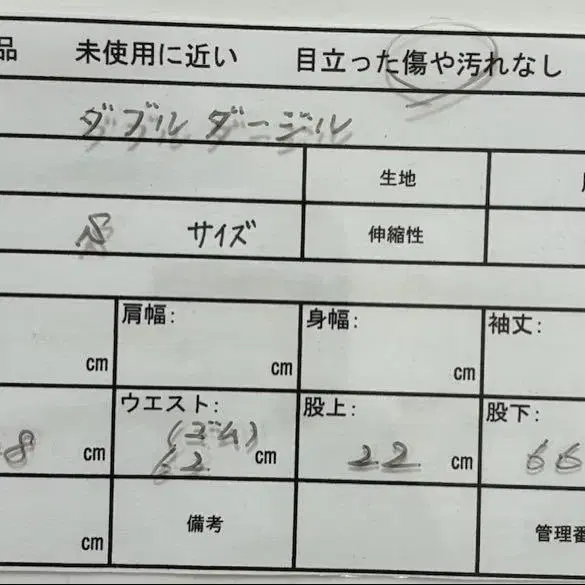 品 未使用に近い 目立った傷や汚れなし
ダブルダージル
生地
S サイズ 伸縮性
肩幅: 身幅: 袖丈:
cm cm cm
ウエスト: 股上: 股下:
(ゴム)
8 cm 62 cm 22 cm 66
cm 備考 管理番